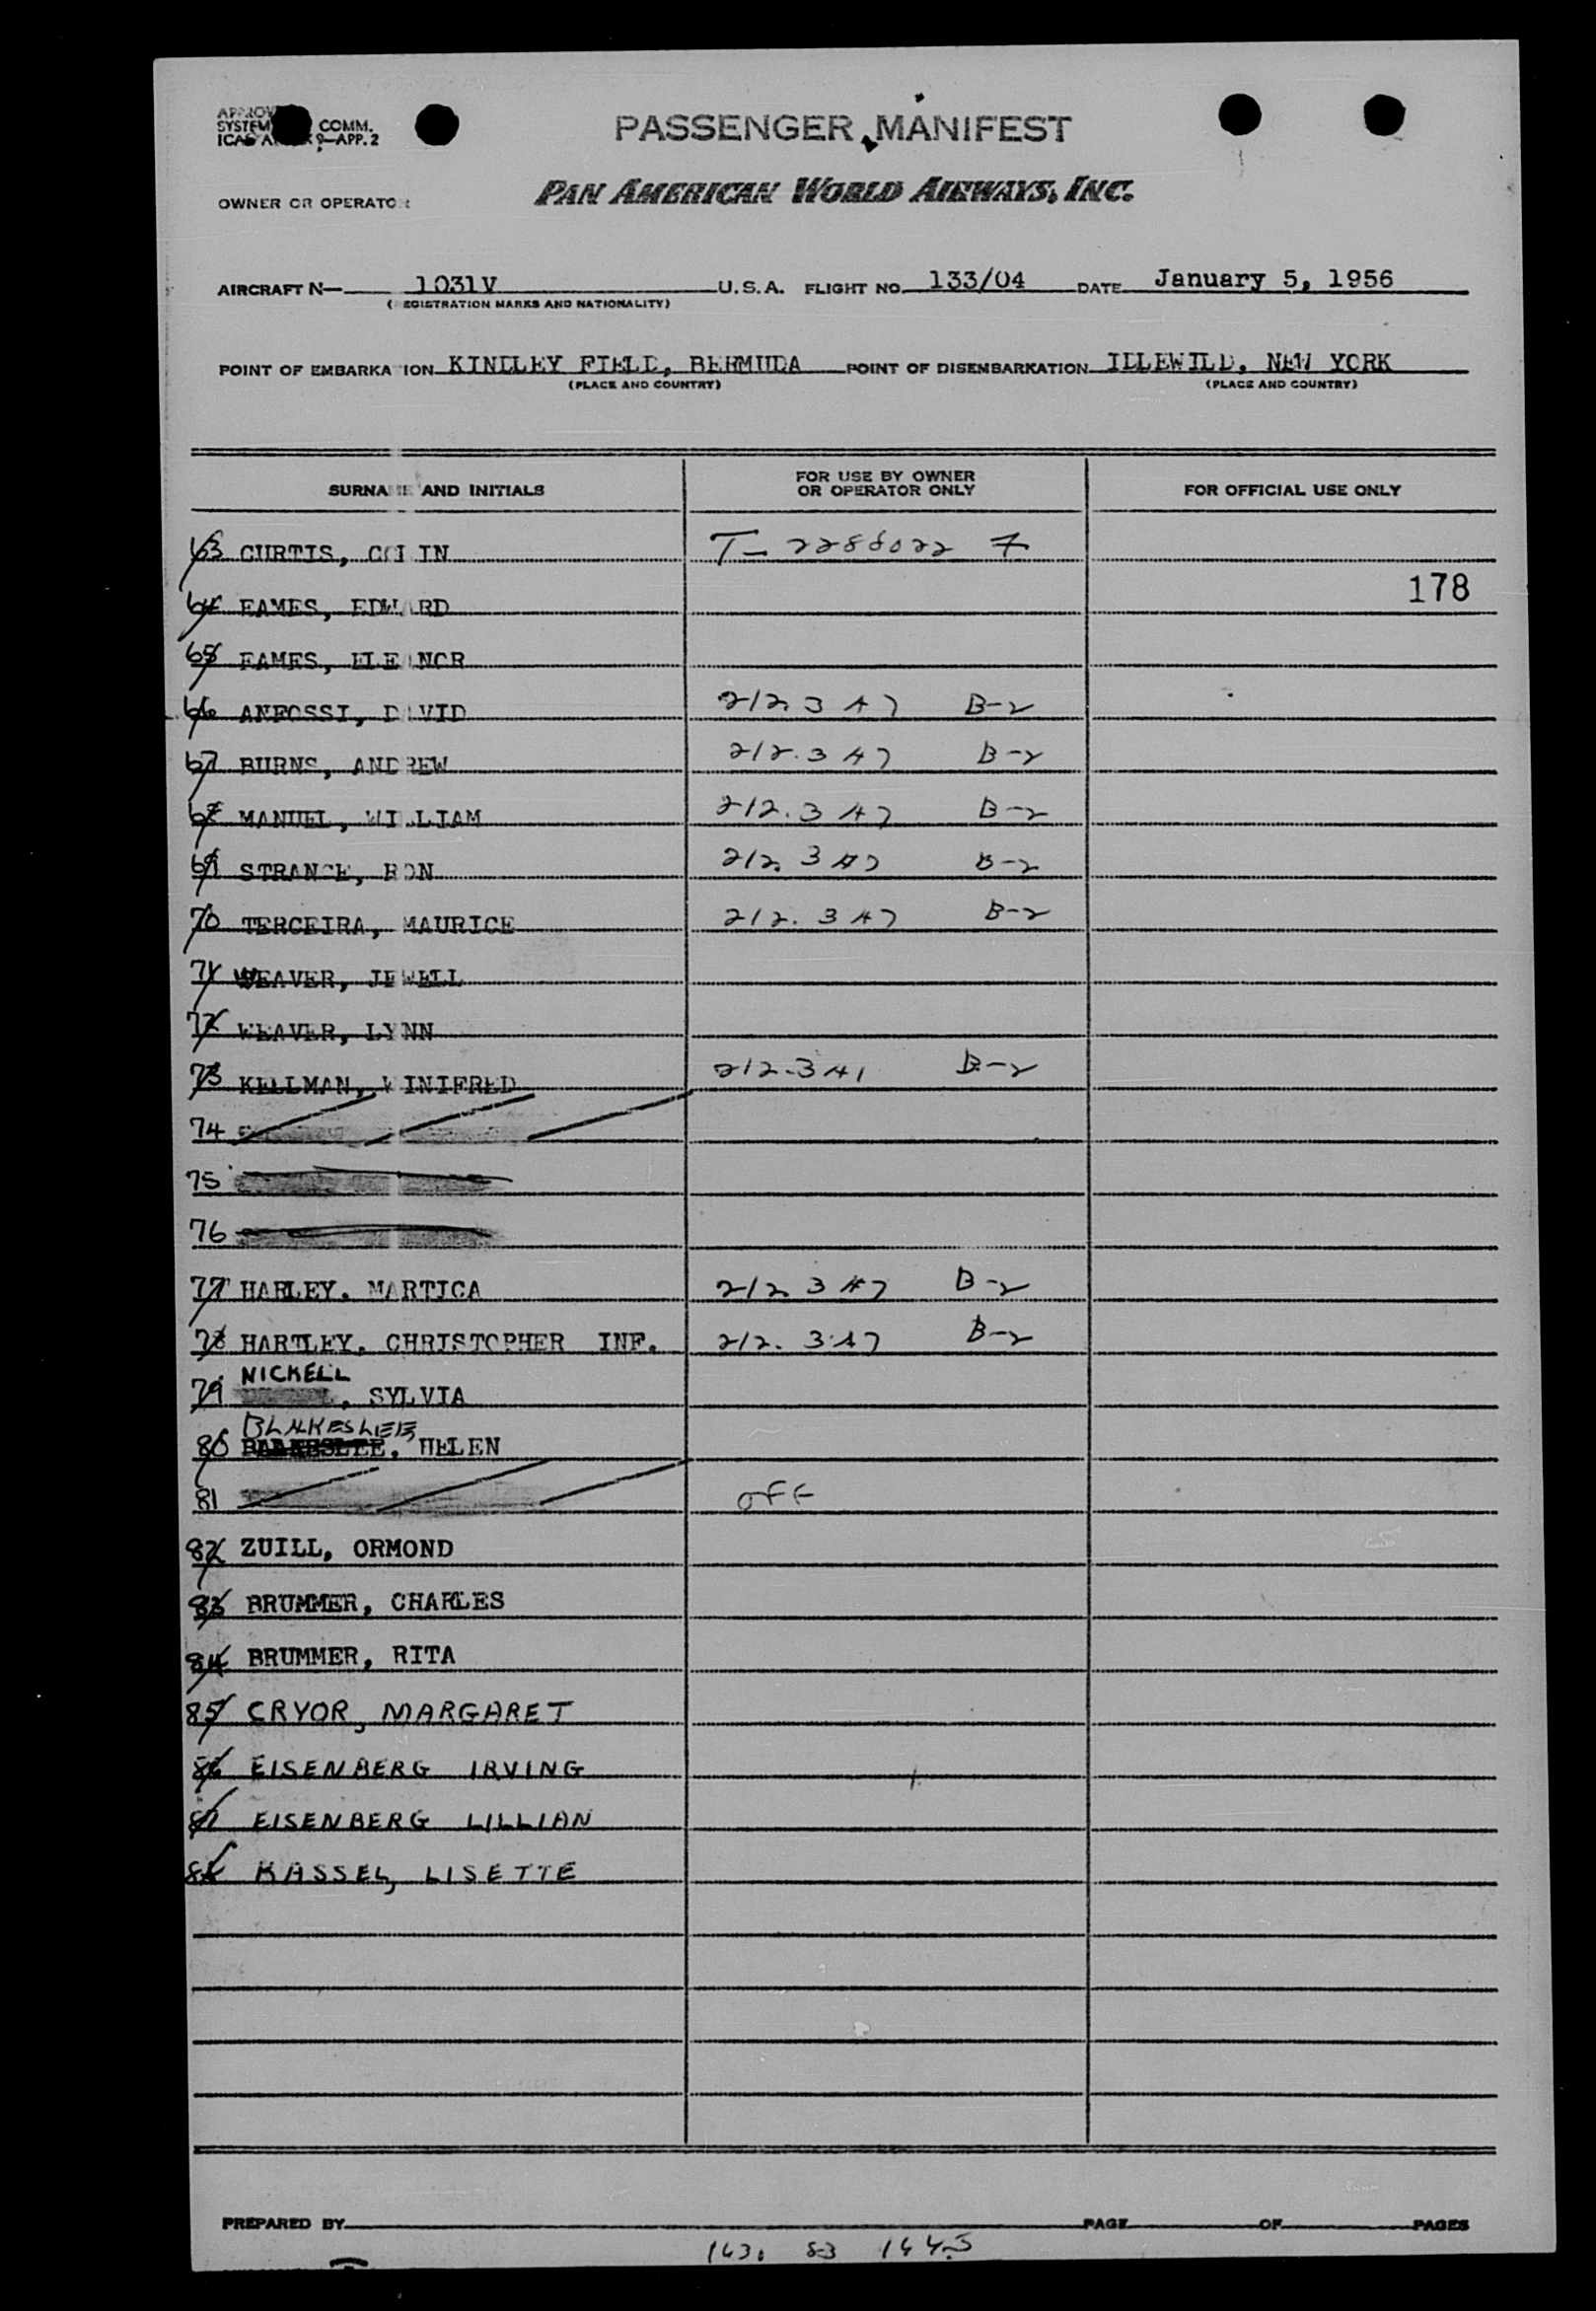 COMM.
SYSTEM
9—APP. 2
PASSENGER MANIFEST
OWNER OR OPERATOR
PAN AMERICAN WORLD AIRWAYS, INC.
AIRCRAFT N— 1031V U.S.A. FLIGHT NO. 133/04 DATE January 5, 1956
(REGISTRATION MARKS AND NATIONALITY)
POINT OF EMBARKATION KINDLEY FIELD, BERMUDA POINT OF DISEMBARKATION IDLEWILD, NEW YORK
(PLACE AND COUNTRY) (PLACE AND COUNTRY)
SURNAME AND INITIALS FOR USE BY OWNER OR OPERATOR ONLY FOR OFFICIAL USE ONLY
63 CURTIS, COLIN T-2286022 7
178
64 EAMES, EDWARD
65 EAMES, ELEANOR
66 ANFOSSI, DAVID 212.3 47 B-2
67 BURNS, ANDREW 212.3 47 B-2
68 MANUEL, WILLIAM 212.3 47 B-2
69 STRANGE, RON 212.3 47 B-2
70 TERCEIRA, MAURICE 212.3 47 B-2
71 WEAVER, JEWELL
72 WEAVER, LYNN
73 KELLMAN, WINIFRED 212.3 41 B-2
74
75
76
77 HARLEY. MARTICA 212.3 47 B-2
78 HARTLEY. CHRISTOPHER INF. 212.3 47 B-2
NICKELL
79 , SYLVIA
BLAKESLEE
80 HELEN
81 OFF
82 ZUILL, ORMOND
83 BRUMMER, CHARLES
84 BRUMMER, RITA
85 CRYOR, MARGARET
86 EISENBERG IRVING
87 EISENBERG LILLIAN
88 KASSEL, LISETTE
PREPARED BY PAGE OF PAGES
163. 83 1445